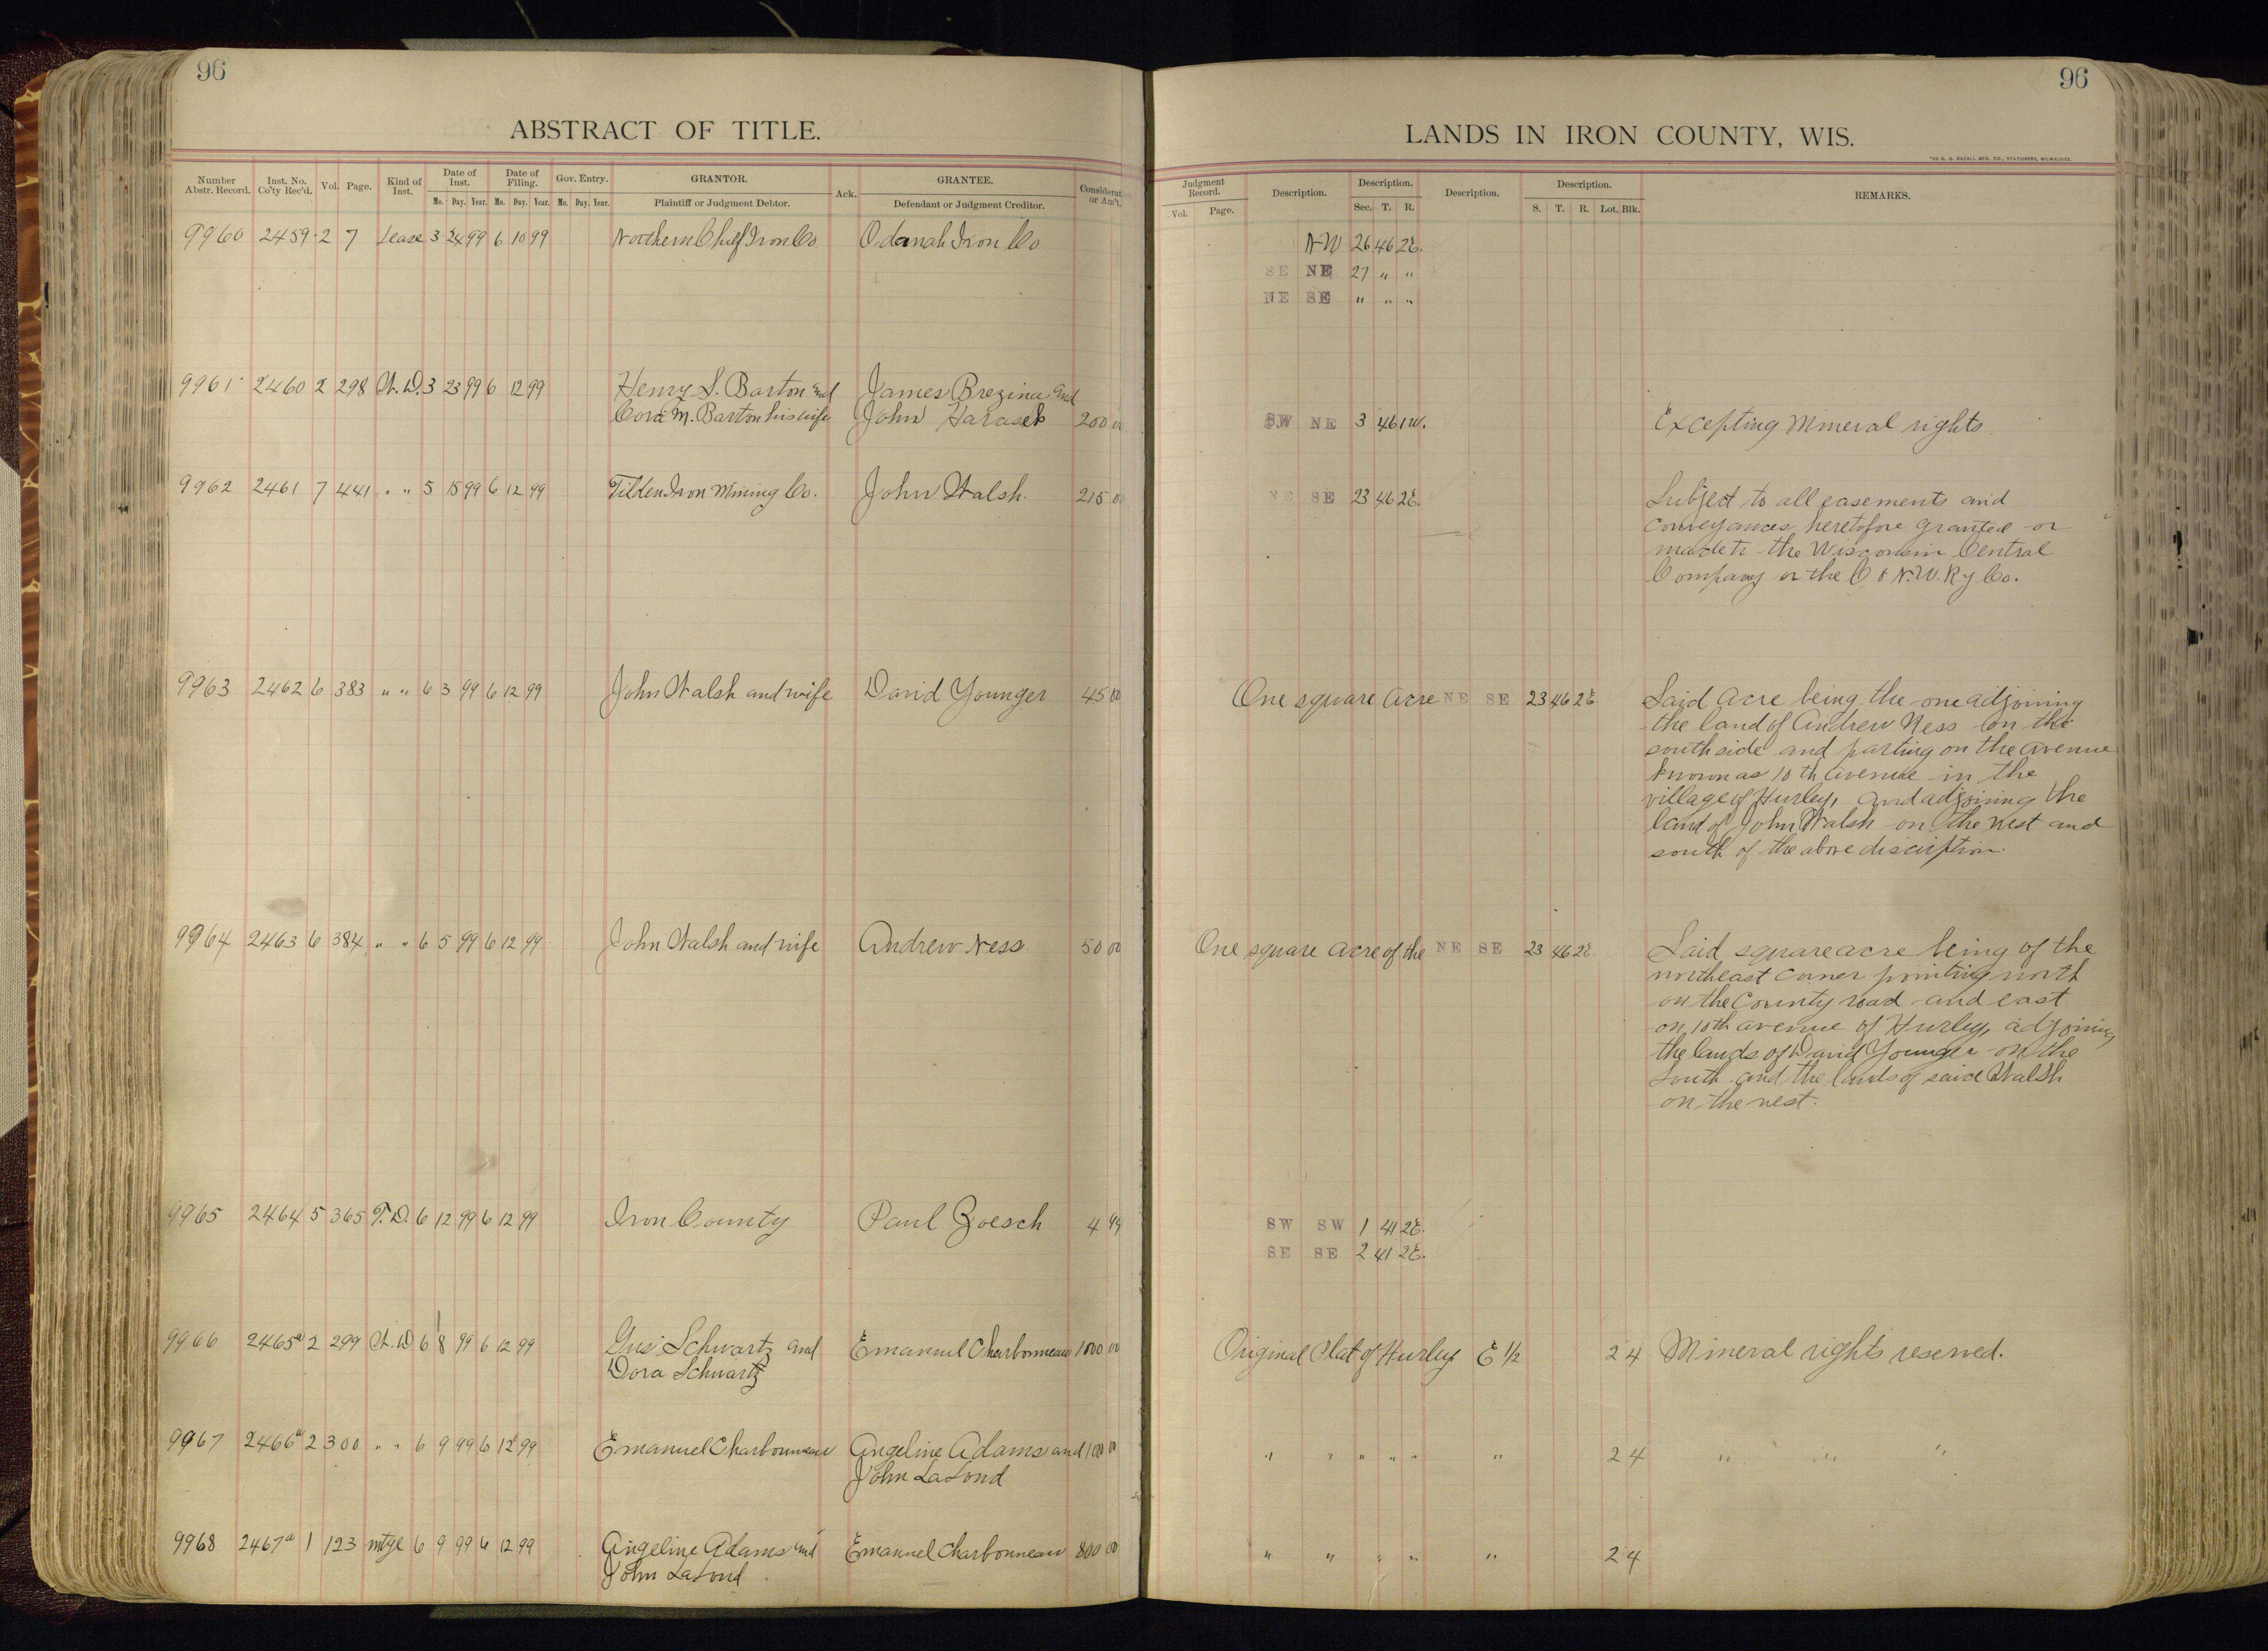 96
ABSTRACT OF TITLE.
Number Abstr. Record. Inst. No. Co'ty Rec'd. Vol. Page. Kind of Inst. Date of Inst. Mo. Day. Year. Date of Filing. Mo. Day. Year. Gov. Entry. Mo. Day. Year. GRANTOR. Plaintiff or Judgment Debtor. Ack. GRANTEE. Defendant or Judgment Creditor. Considerat or Am't.
9960 2459 2 7 Lease 3 24 99 6 10 99 Northern Chief Iron Co Odanah Iron Co
9961 2460 2 298 W. D. 3 23 99 6 12 99 Henry S. Barton and James Brezina and
Cora M. Barton his wife John Harasek 200 00
9962 2461 7 441 " " 5 15 99 6 12 99 Tilden Iron Mining Co. John Walsh 215 00
9963 2462 6 383 " " 6 3 99 6 12 99 John Walsh and wife David Younger 45 00
9964 2463 6 384 " " 6 5 99 6 12 99 John Walsh and wife Andrew Ness 50 00
9965 2464 5 365 T. D. 6 12 99 6 12 99 Iron County Paul Zoesch 4
9966 2465a 2 299 W. D 6 8 99 6 12 99 Gus Schwartz and Emanuel Charbonneau 1000 00
Dora Schwartz
9967 2466a 2 300 " " 6 9 99 6 12 99 Emanuel Charbonneau Angeline Adams and 00
John LaLond
9968 2467a 1 123 mtge 6 9 99 6 12 99 Angeline Adams and Emanuel Charbonneau 800 00
John LaLond
96
LANDS IN IRON COUNTY, WIS.
THE H. G. RAZALL MFG. CO., STATIONERS, MILWAUKEE.
Judgment Record. Vol. Page. Description. Description. Sec. T. R. Description. Description. S. T. R. Lot. Blk. REMARKS.
NW 26 46 2E.
SE NE 27 " "
NE SE " " "
SW NE 3 46 1W. Excepting Mineral rights.
NE SE 23 46 2E. Subject to all easements and
conveyances heretofore granted or
made to the Wisconsin Central
Company or the C & N.W. Ry Co.
One square acre NE SE 23 46 2E Said acre being the one adjoining
the land of Andrew Ness on the
south side and parting on the avenue
known as 10th avenue in the
village of Hurley, and adjoining the
land of John Walsh on the west and
south of the above discription.
One square acre of the NE SE 23 46 2E. Said square acre being of the
northeast corner pointing north
on the County road and east
on 10th avenue of Hurley, adjoining
the lands of David Younger on the
South and the lands of said Walsh
on the west.
SW SW 1 41 2E.
SE SE 2 41 2E.
Original Plat of Hurley E 1/2 2 4 Mineral rights reserved.
" " " " " " 2 4 " " "
" " " " " 2 4